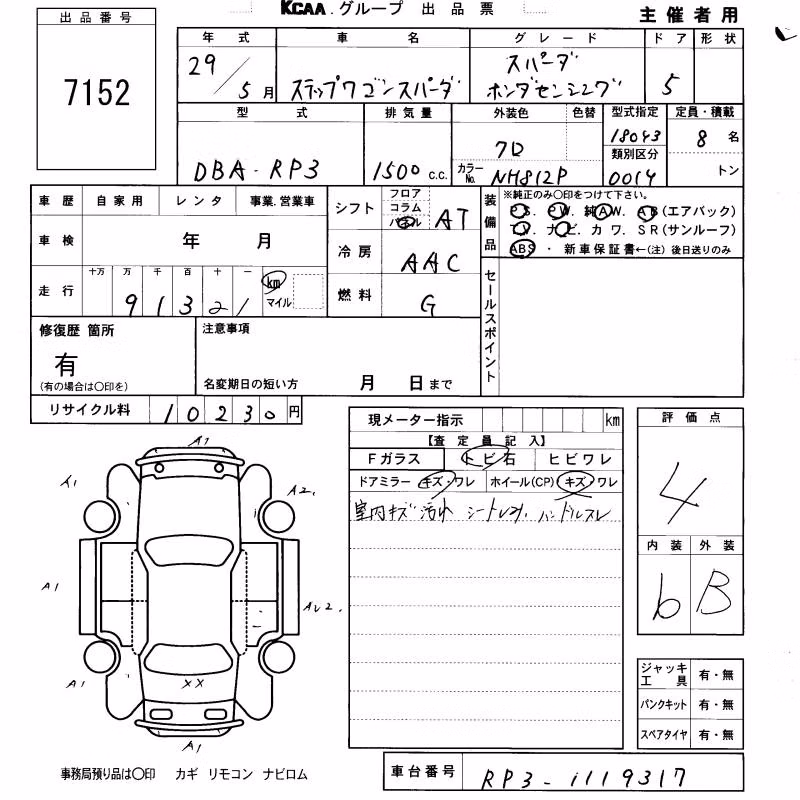 KCAA.グループ 出品票
主催者用
出品番号
7152
年式 車名 グレード ドア 形状
29/5月 ステップワゴンスパーダ スパーダ ホンダセンシング 5
型式 排気量 外装色 色替 型式指定 定員・積載
DBA-RP3 1500 c.c. クロ 18043 8 名
カラーNo. NH812P 類別区分 0014 トン
車歴 自家用 レンタ 事業.営業車
車検 年 月
走行 十万 万 千 百 十 一
91321 km マイル
シフト フロア コラム パネル AT
冷房 AAC
燃料 G
装備品 ※純正のみ〇印をつけて下さい。
P.S. P.W. 純A.W. A.B(エアバック)
T.V. ナビ. カワ. S.R(サンルーフ)
ABS ・ 新車保証書←(注) 後日送りのみ
セールスポイント
修復歴 箇所
有
(有の場合は〇印を)
注意事項
名変期日の短い方 月 日まで
リサイクル料 10230円
現メーター指示 km
【査定員記入】
Fガラス トビ石 ヒビワレ
ドアミラー キズ・ワレ ホイール(CP) キズ・ワレ
室内キズ 汚れ シートレス. ハンドルスレ
評価点
4
内装 外装
b B
A1
A1 A2.
A1
AU2.
A1
XX
A1
ジャッキ工具 有・無
パンクキット 有・無
スペアタイヤ 有・無
事務局預り品は〇印 カギ リモコン ナビロム
車台番号 RP3-1119317